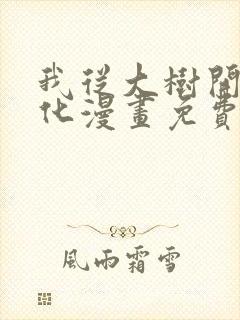 我從大樹開
化漫畫免費
風雨霜雪